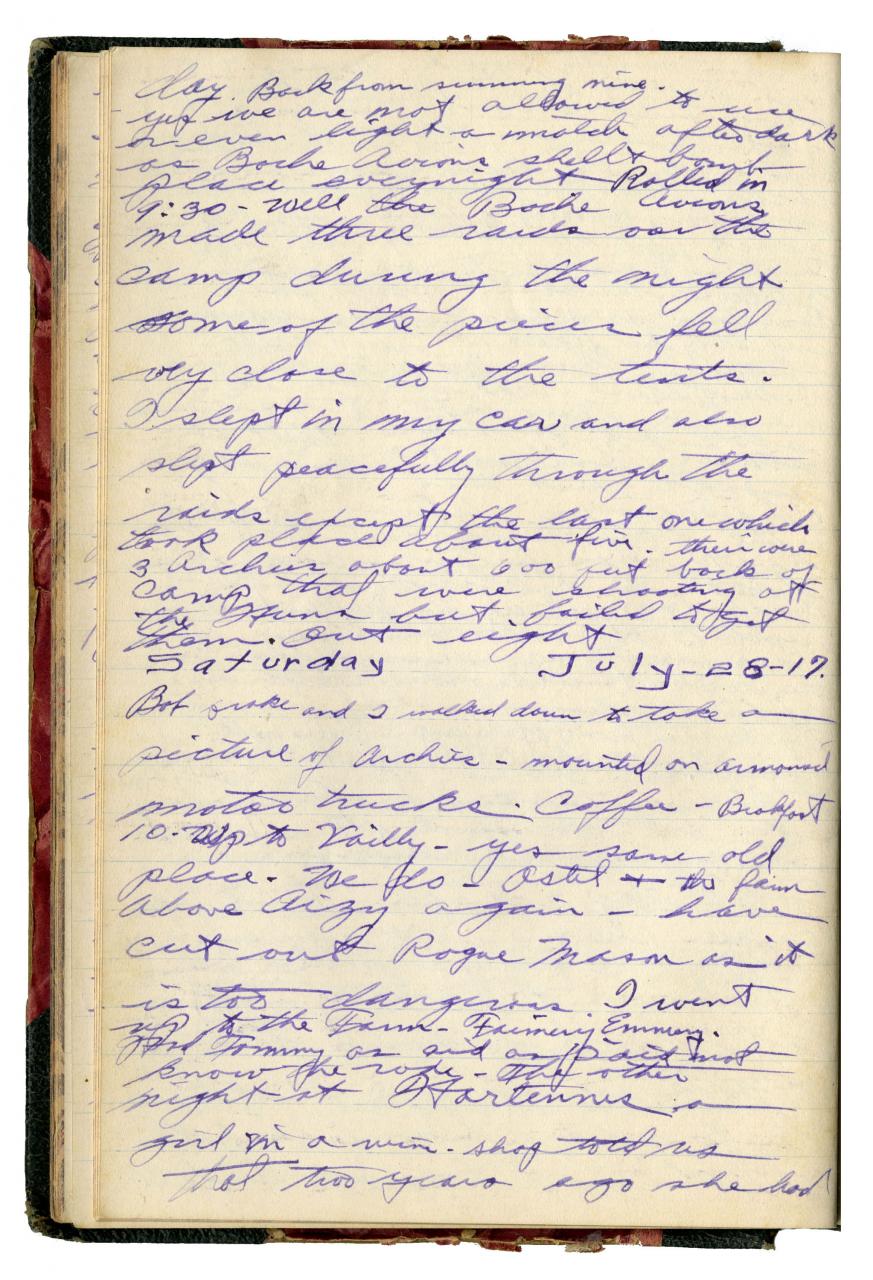 day. Back from running nine.
yes we are not allowed to use
or even light a match after dark
as Boche Avions shell & bomb
place everynight Rolled in
9:30 - well the Boche Avions
made three raids over the
camp during the night
some of the pieces fell
very close to the tents.
I slept in my car and also
slept peacefully through the
raids except the last one which
took place about five. their were
3 Archies about 600 feet back of
camp that were shooting at
the Huns but failed to get
them. Out eight
Saturday July-28-17.
Bob and I walked down to take a
picture of Archies - mounted on armored
motor trucks. Coffee - Breakfast
10- up to Vailly - yes same old
place. We do - Ostel + the farm
above Aizy again - have
cut out Rogue Mason as it
is too dangerous I went
up to the Farm -
Tommy as aid as I did not
know the rode - The other
night at Hartennes a
girl in a wine-shop told us
that two years ago she had